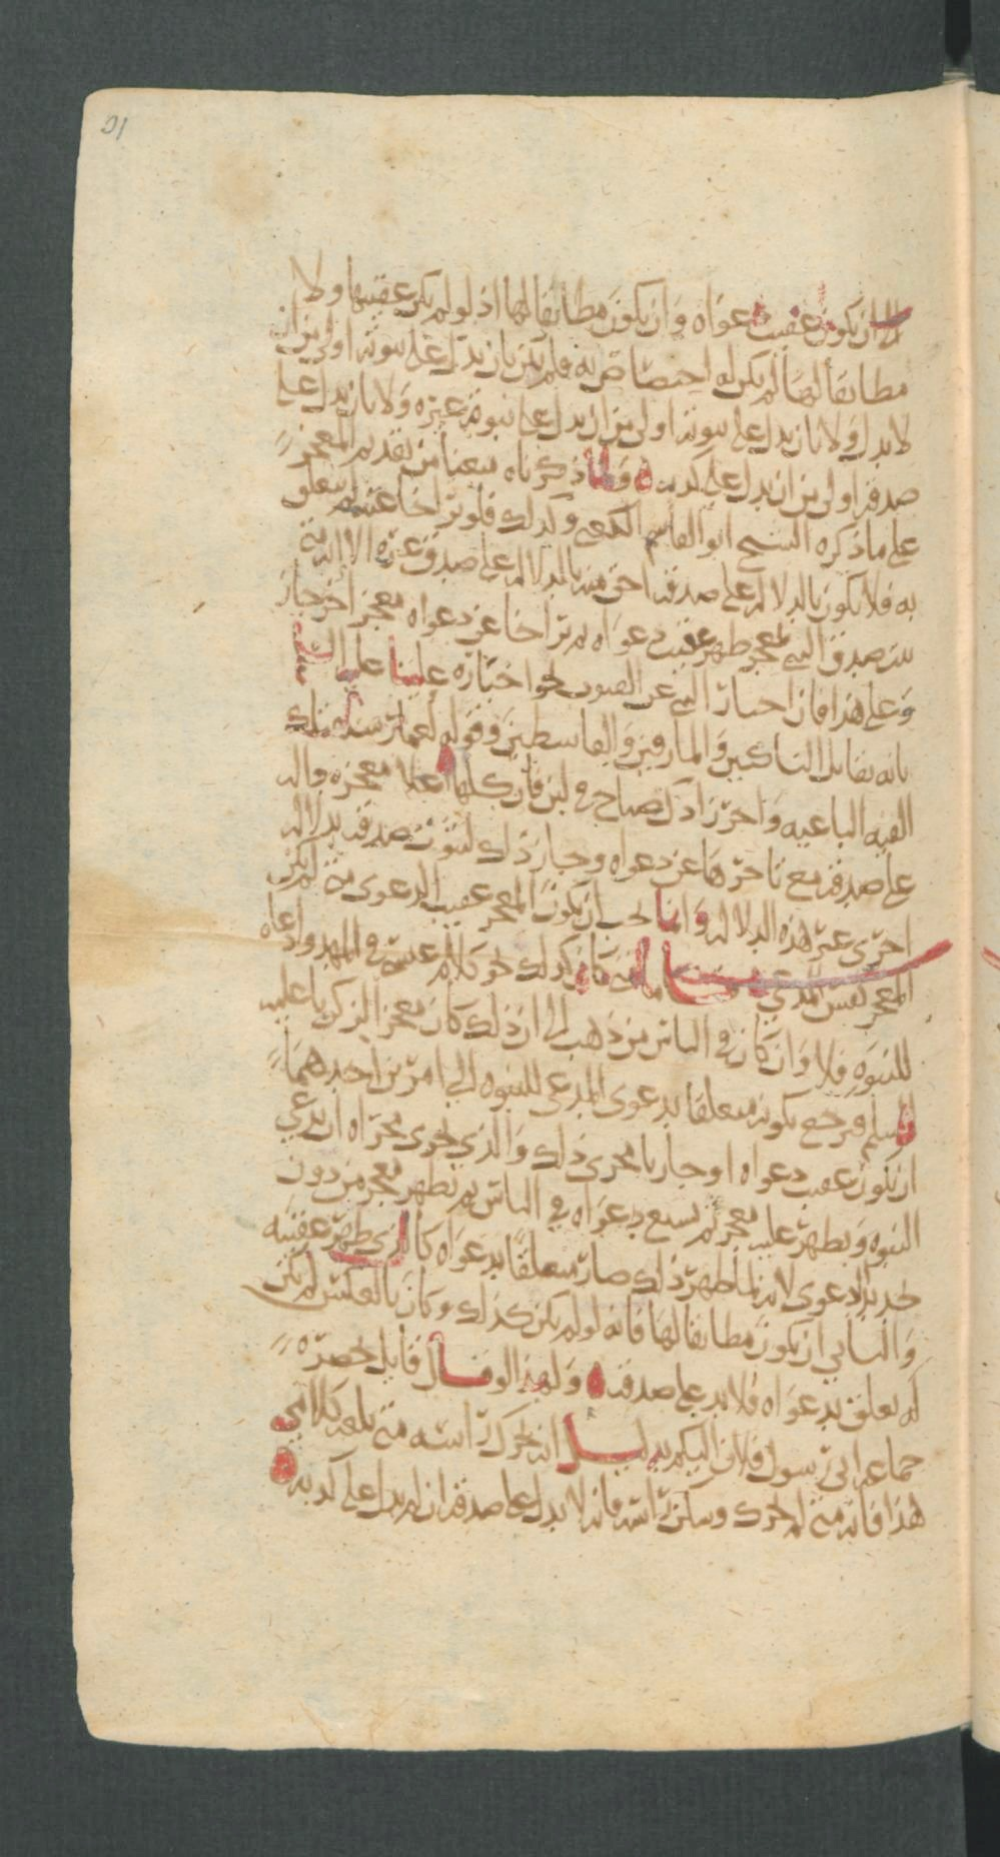 ان يكون عقيب دعواه وان يكون مطابقا لها اذ لو لم يكن عقيبها ولا
مطابقا لها لم يكن له اختصاص به فلم يكن بان يدل على نبوته اولى من ان
لا يدل ولا بان يدل على نبوته اولى من ان يدل على نبوة غيره ولا بان يدل على
صدقه اولى من ان يدل على كذبه ولما ذكرناه منعنا من تقديم المعجز
على ما ذكره الشيخ ابو القاسم الكعبي وكذلك فلو تراخا عنه لم يتعلق
به فلا يكون بالدلالة على صدقه احق منه بالدلالة على صدق غيره الا انه متى
صدق النبي لمعجز ظهر عقيب دعواه ثم تراخا عن دعواه معجز اخر جاز
وعلى هذا فان اخبار النبي عن الغيوب نحو اخباره عليا عليه السلم
بانه يقاتل الناكثين والمارقين والقاسطين وقوله لعمار ستقتلك
الفئة الباغية واخر زادك ضياح من لبن فان كلها معجزة دالة
على صدقه مع تاخرها عن دعواه وجاز ذلك لثبوت صدقه بدلالة
اخرى غير هذه الدلالة وانما يجب ان يكون المعجز عقيب الدعوى متى لم يكن
المعجز نفس المدعي فاما متى كان كذلك نحو كلام عيسى في المهد وادعاه
للنبوة فلا وان كان في الناس من ذهب الى ان ذلك كان معجزا لزكريا عليه
السلم فرجع كونه متعلقا بدعوى المدعي للنبوة الى امرين احدهما
ان يكون عقيب دعواه او جاريا مجرى ذلك والذي يجري مجراه ان يدعي
النبوة ويظهر عليه معجز ثم تشيع دعواه في الناس ثم يظهر معجز من دون
تجديد الدعوى لانه لما ظهر ذلك صار متعلقا بدعواه كالذي ظهر عقيبه
والثاني ان يكون مطابقا لها فانه لو لم يكن كذلك وكان بالعكس لم يكن
له تعلق بدعواه فلا يدل على صدقه ولهذا لو قال قايل بحضرة
جماعة اني رسول فلان اليكم بدليل انه يحرك راسه متى بلغه كلامي
هذا فانه متى لم يحرك وسكن راسه فانه لا يدل على صدقه ان لم يدل على كذبه